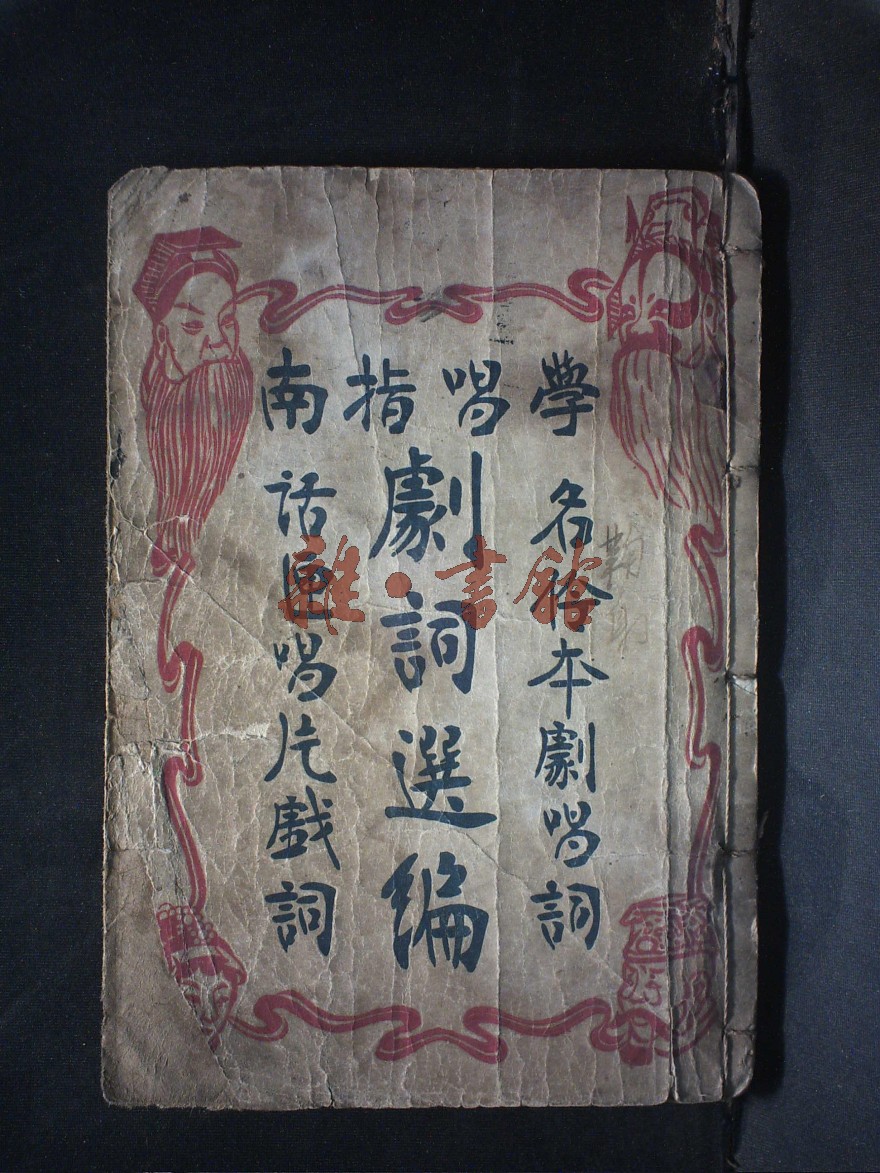 學唱指南
名伶本劇唱詞
劇詞選編
話匣唱片戲詞
雜·書館